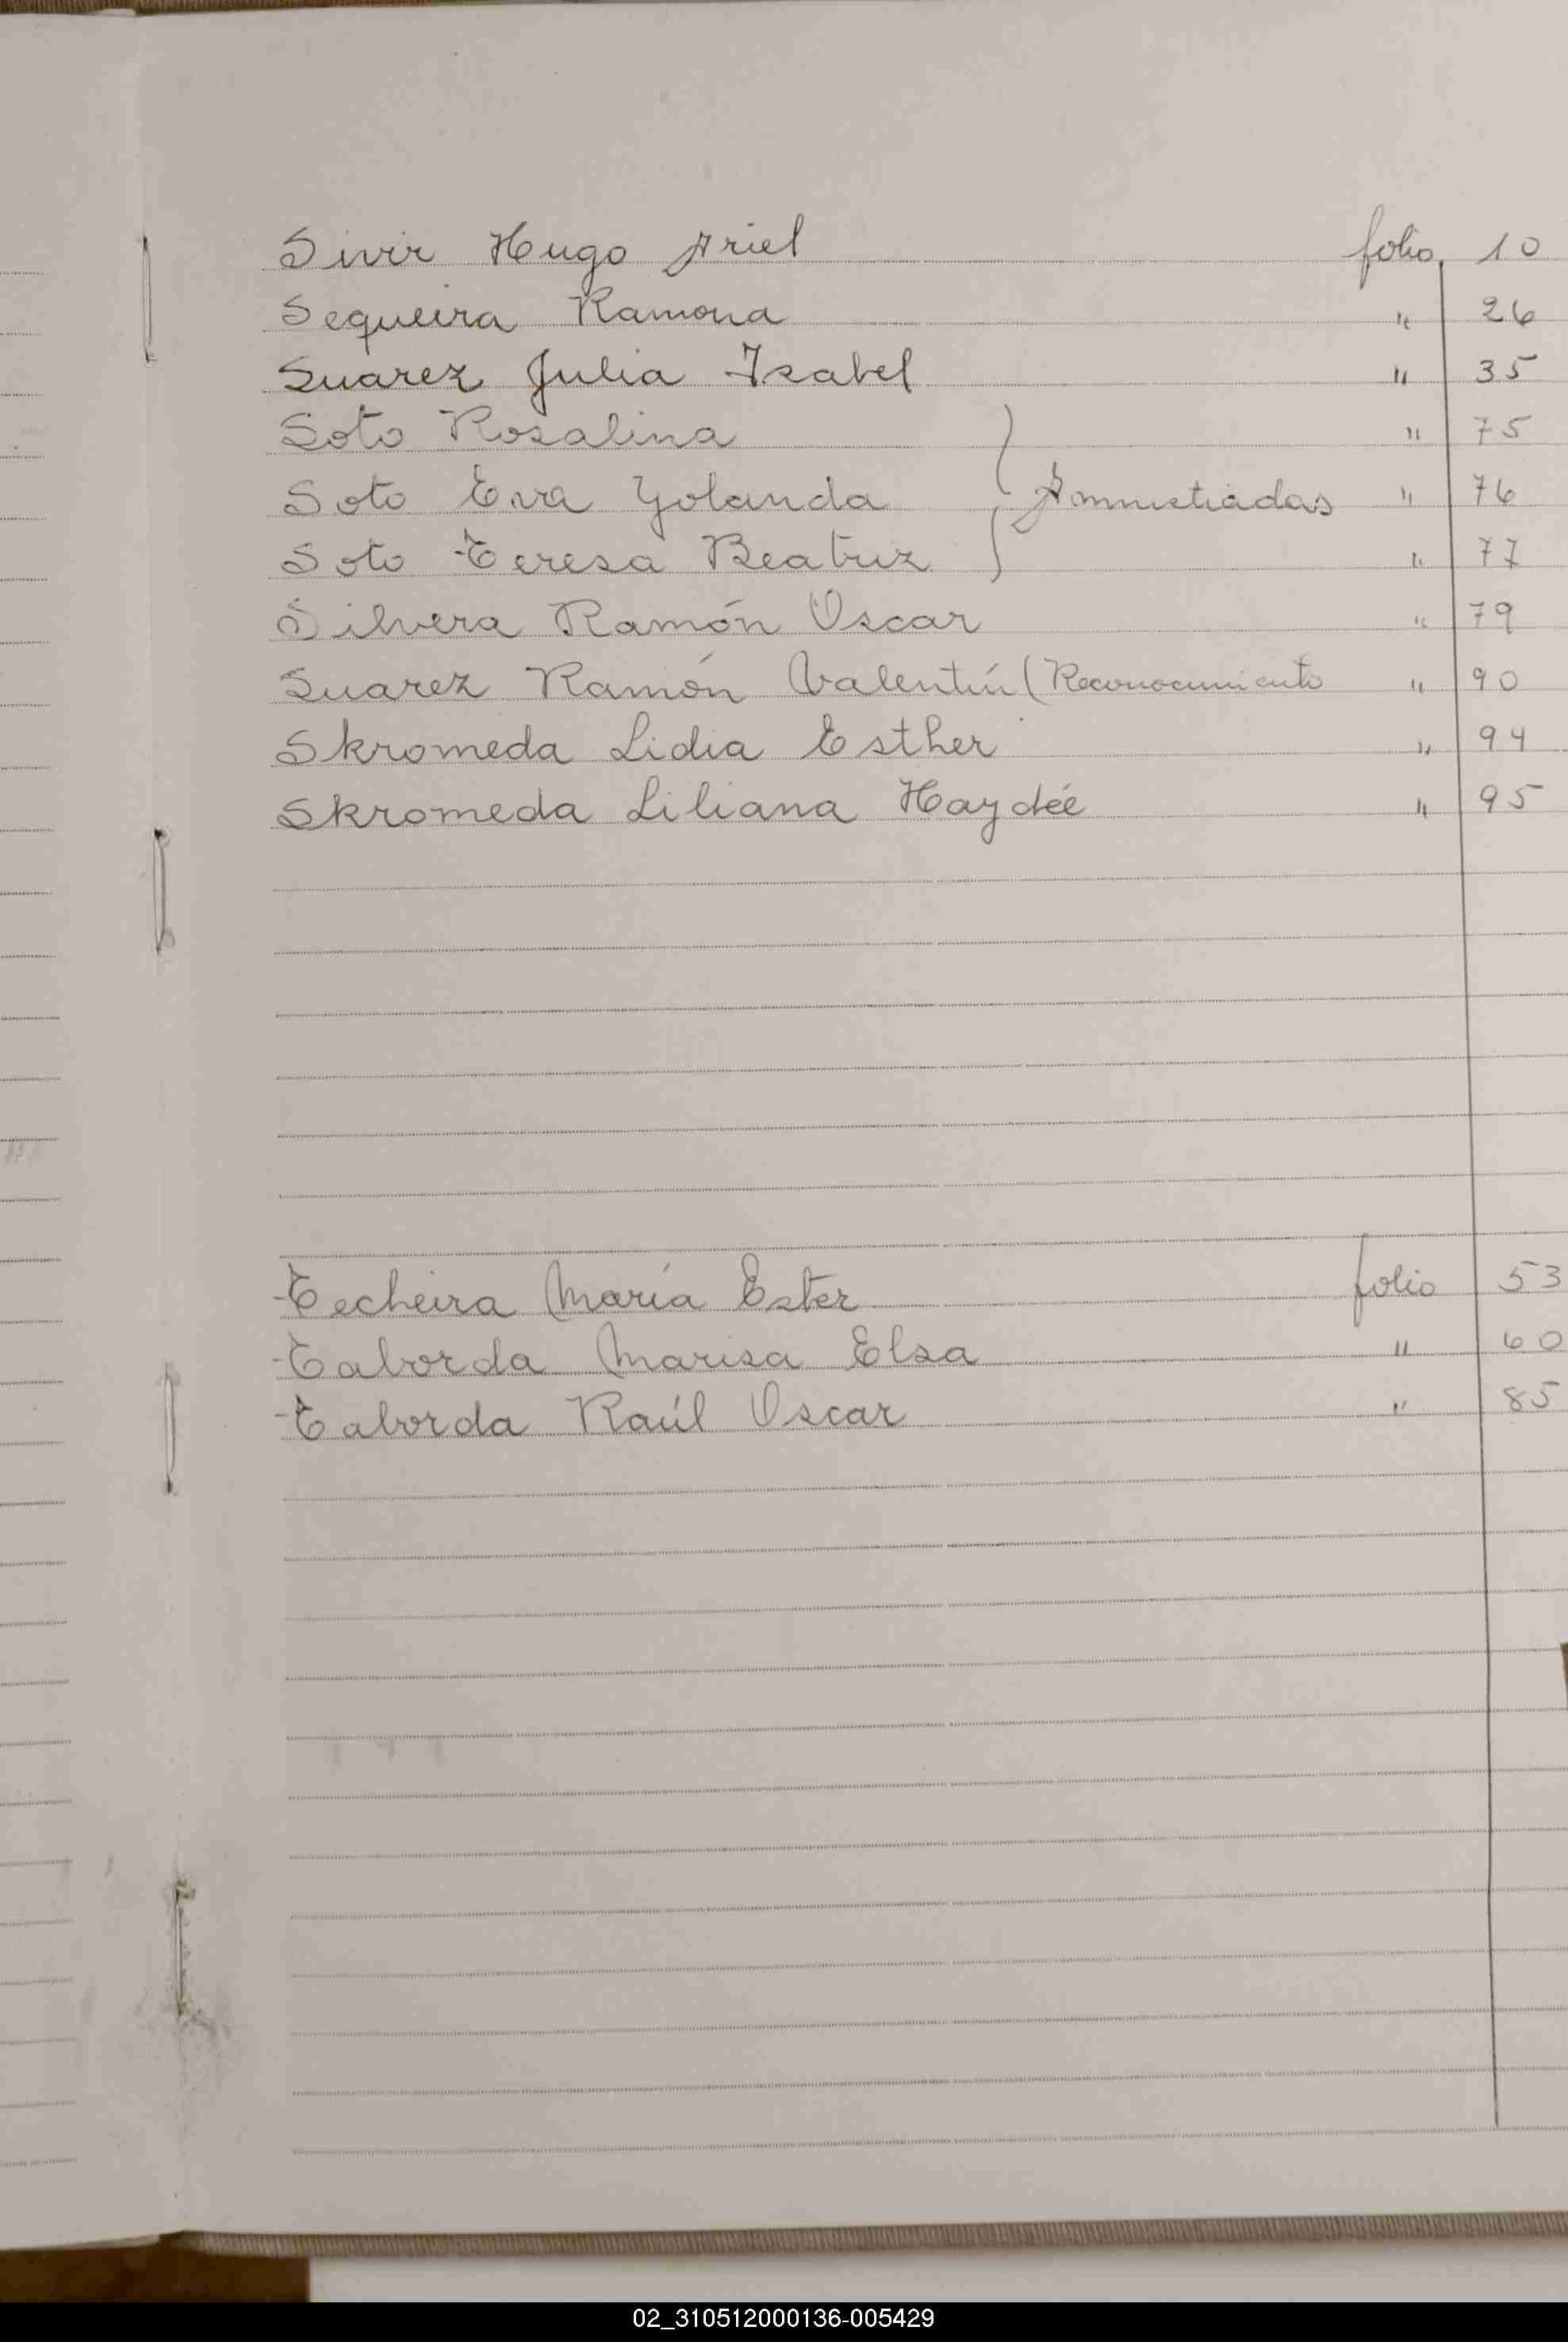 Sivir Hugo Ariel folio 10
Sequeira Ramona " 26
Suarez Julia Isabel " 35
Soto Rosalina " 75
Soto Eva Yolanda } Amnistiadas " 76
Soto Teresa Beatriz " 77
Silvera Ramón Oscar " 79
Suarez Ramón Valentín (Reconocimiento " 90
Skromeda Lidia Esther " 94
Skromeda Liliana Haydée " 95
Techeira María Ester folio 53
Taborda Marisa Elsa " 60
Taborda Raúl Oscar " 85
02_310512000136-005429